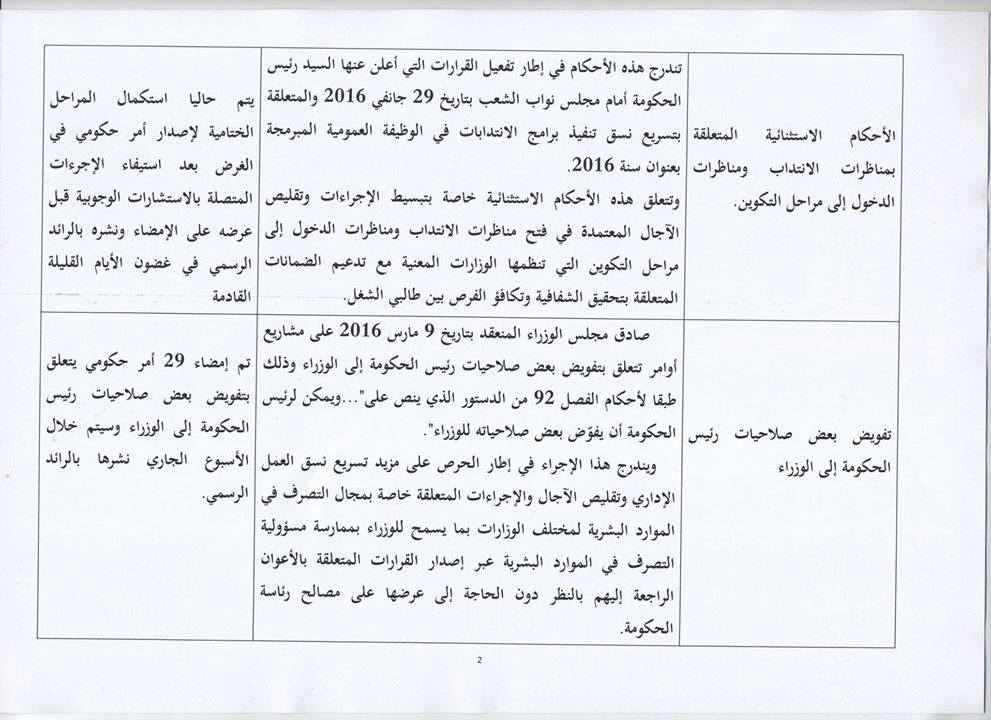 الأحكام الاستثنائية المتعلقة
بمناظرات الانتداب ومناظرات
الدخول إلى مراحل التكوين.
تندرج هذه الأحكام في إطار تفعيل القرارات التي أعلن عنها السيد رئيس
الحكومة أمام مجلس نواب الشعب بتاريخ 29 جانفي 2016 والمتعلقة
بتسريع نسق تنفيذ برامج الانتدابات في الوظيفة العمومية المبرمجة
بعنوان سنة 2016.
وتتعلق هذه الأحكام الاستثنائية خاصة بتبسيط الإجراءات وتقليص
الآجال المعتمدة في فتح مناظرات الانتداب ومناظرات الدخول إلى
مراحل التكوين التي تنظمها الوزارات المعنية مع تدعيم الضمانات
المتعلقة بتحقيق الشفافية وتكافؤ الفرص بين طالبي الشغل.
يتم حاليا استكمال المراحل
الختامية لإصدار أمر حكومي في
الغرض بعد استيفاء الإجرءات
المتصلة بالاستشارات الوجوبية قبل
عرضه على الإمضاء ونشره بالرائد
الرسمي في غضون الأيام القليلة
القادمة
تفويض بعض صلاحيات رئيس
الحكومة إلى الوزراء
صادق مجلس الوزراء المنعقد بتاريخ 9 مارس 2016 على مشاريع
أوامر تتعلق بتفويض بعض صلاحيات رئيس الحكومة إلى الوزراء وذلك
طبقا لأحكام الفصل 92 من الدستور الذي ينص على"...ويمكن لرئيس
الحكومة أن يفوّض بعض صلاحياته للوزراء".
ويندرج هذا الإجراء في إطار الحرص على مزيد تسريع نسق العمل
الإداري وتقليص الآجال والإجراءات المتعلقة خاصة بمجال التصرف في
الموارد البشرية لمختلف الوزارات بما يسمح للوزراء بممارسة مسؤولية
التصرف في الموارد البشرية عبر إصدار القرارات المتعلقة بالأعوان
الراجعة إليهم بالنظر دون الحاجة إلى عرضها على مصالح رئاسة
الحكومة.
تم إمضاء 29 أمر حكومي يتعلق
بتفويض بعض صلاحيات رئيس
الحكومة إلى الوزراء وسيتم خلال
الأسبوع الجاري نشرها بالرائد
الرسمي.
2